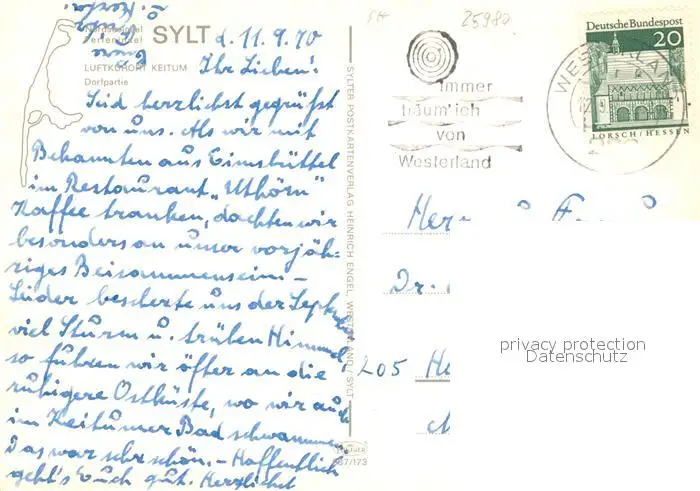 Nordseeinsel
Ferieninsel SYLT d. 11.9.70
LUFTKURORT KEITUM
Dorfpartie
Ihr Lieben!
Seid herzlichst gegrüßt
von uns. Als wir mit
Bekannten aus Eimsbüttel
im Restaurant „Uthörn"
Kaffee tranken, dachten wir
besonders an unser vorjäh-
riges Beisammensein. -
Leider bescherte uns der Septbr.
viel Sturm u. trüben Himmel,
so fuhren wir öfter an die
ruhigere Ostküste, wo wir auch
im Keitumer Bad schwammen.
Das war sehr schön. - Hoffentlich
geht's Euch gut. Herzlichst
Eure
u.
SYLTER POSTKARTENVERLAG HEINRICH ENGEL, WESTERLAND / SYLT
667/173
25980
immer
träum' ich
von
Westerland
WESTERLAND
Deutsche Bundespost
20
LORSCH/HESSEN
Herr u. Frau
Dr.
205
privacy protection
Datenschutz